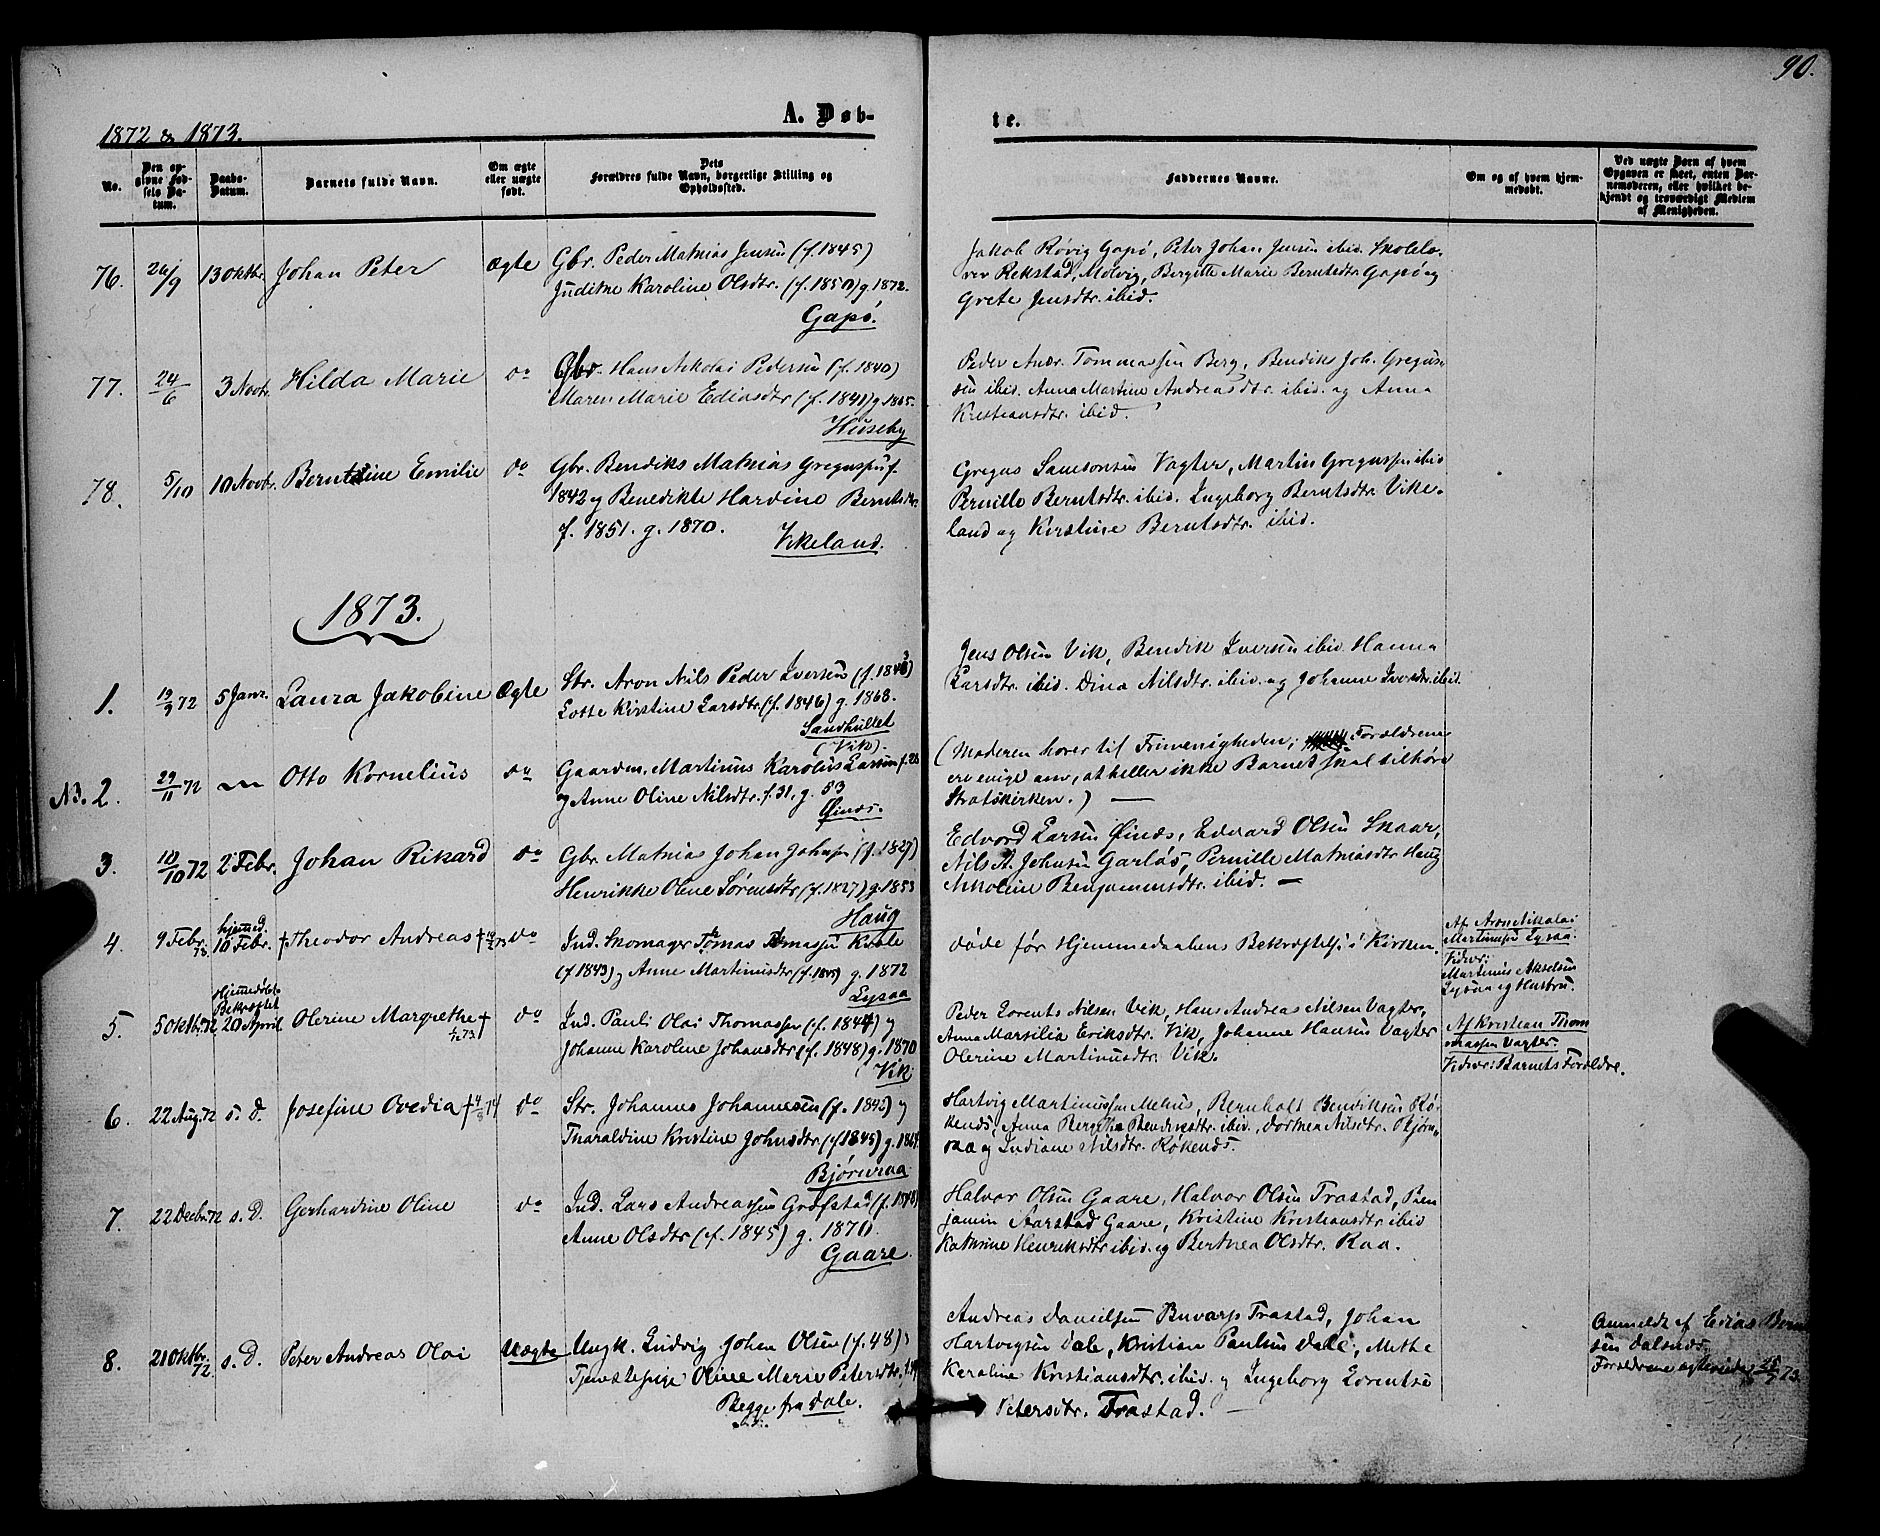 90.
1872 & 1873.
A. Døb-
te.
No.
Den op-
givne Fød-
sels Da-
tum.
Daabs-
Datum.
Barnets fulde Navn.
Om ægte
eller uægte
født.
Dets
Forældres fulde Navn, borgerlige Stilling og
Opholdssted.
Faddernes Navne.
Om og af hvem hjem-
medøbt.
Ved uægte Børn af hvem
Opgaven er skeet, enten Bar-
nemoderen, eller hvilket be-
kjendt og troværdigt Medlem
af Menigheden.
76. 26/9 13 Oktbr. Johan Peter ægte Gbr. Peder Mathias Jensen (f. 1845)
Judithe Karoline Olsdtr. (f. 1850) g 1872.
Gapø.
Jakob Røvig Gapø, Peter Johan Jensen ibid. Skolelæ-
rer Rekstad, Molvig, Bergitte Marie Berntsdtr. Gapø og
Grete Jensdtr. ibid.
77. 24/6 3 Novbr. Hilda Marie do Gbr. Hans Nikolai Pedersen (f. 1840)
Maren Marie Eliasdtr (f. 1841) g. 1865.
Huseby
Peder Andr. Tommassen Berg, Bendiks Joh. Gregus-
sen ibid. Anna Martine Andreasdtr. ibid. og Anna
Kristiansdtr. ibid.
78. 5/10 10 Novbr. Berntine Emilie do Gbr. Bendiks Mathias Gregussen f.
1842 og Benedikte Hardine Berntsdtr.
f. 1851. g. 1870.
Vikeland.
Gregus Samsonsen Vagter, Martin Gregussen ibid
Pernille Berntsdtr. ibid. Ingeborg Berntsdtr. Vike-
land og Kirstine Berntsdtr. ibid.
1873.
1. 19/9 72 5 Janr. Laura Jakobine Ægte Str. Aron Nils Peder Iversen (f. 1843)
Lotte Kirstine Larsdtr. (f. 1846) g. 1868.
Sandhullet
(Vik).
Jens Olsen Vik, Bendik Iversen ibid. Hanna
Larsdtr. ibid. Dina Nilsdtr. ibid. og Johanne Iversdtr. ibid.
NB. 2. 29/11 72 Otto Kornelius do Gaardm. Martinus Karolus Larsen f. 28
og Anne Oline Nilsdtr. f. 31, g. 53
Øines.
(Moderen hører til Frimenigheden; Forældrene
ere enige om, at heller ikke Barnet skal tilhøre
Statskirken.)
3. 10/10 72 2 Febr. Johan Rikard do Gbr. Mathias Johan Johnsen (f. 1827)
Henrikke Oline Sørensdtr (f. 1827) g. 1853
Haug
Edvard Larsen Øines, Edvard Olsen Skaar,
Nils A. Johnsen Garløs, Pernille Mathiasdtr Haug
Nikoline Benjaminsdtr. ibid.
4. 9 Febr. 73. hjemmed. 10 Febr. † Theodor Andreas † do Ind. Skomager Tomas Tomassen Krble
(f 1843) og Anne Martinusdtr (f. ) g. 1872
Lysaa
døde før Hjemmedaabens Bekræftelse i Kirken.
Af Aron Nikolai
Martinusen Lysaa.
Vidner:
Martinus Akselsen
Lysaa og Hustru.
5. 5 Oktbr. 72 Hjemmedøbt
Bekræftet
20 April Olerine Margrethe † do Ind. Pauli Olai Thomassen (f. 1844) og
Johanne Karoline Johansdtr (f. 1848) g. 1870
Vik
Peder Lorents Nilsen Vik, Hans Andreas Nilsen Vagter,
Anna Marsilia Eriksdtr. Vik, Johanne Hansen Vagter
Olerine Martinusdtr. Vik.
Af Kristian Thom
massen Vagter.
Vidner: Barnets Forældre.
6. 22 Aug. 72 s. D. Josefine Ovedia † 4/8 74 do Str. Johannes Johannesen (f. 1845) og
Tharaldine Kristine Johnsdtr (f 1845) g. 1869
Bjørnraa
Hartvig Martinussen Melus, Bernholt Bendiksen Rø-
kends, Anna Bergitha Bendiksdtr. ibid., Dorthea Nilsdtr. Bjørn-
raa og Indiane Nilsdtr. Røkends.
7. 22 Decbr. 72 s. D. Gerhardine Oline do Ind. Lars Andreassen Grøfstad (f. 1848)
Anne Olsdtr (f. 1845) g. 1870.
Gaare
Halvor Olsen Gaare, Halvor Olsen Trastad, Ben
jamin Aarstad Gaare, Kristine Kristiansdtr. ibid
Kathrine Henriksdtr ibid. og Berthea Olsdtr. Raa.
8. 21 Oktbr. 72. s. D. Peter Andreas Olai Uægte Ungk. Ludvig Johan Olsen (f. 48) og
Tjenestepige Oline Marie Petersdtr.
Begge fra Dale.
Andreas Danielsen Buvarp Trastad, Johan
Hartvigsen Dale, Kristian Paulsen Dale, Methe
Karoline Kristiansdtr. ibid. og Ingeborg Lorentse
Petersdtr. Trastad.
Anmeldt af Elias Bernt
sen Dalsnes.
Forældrene ægteviede 73.